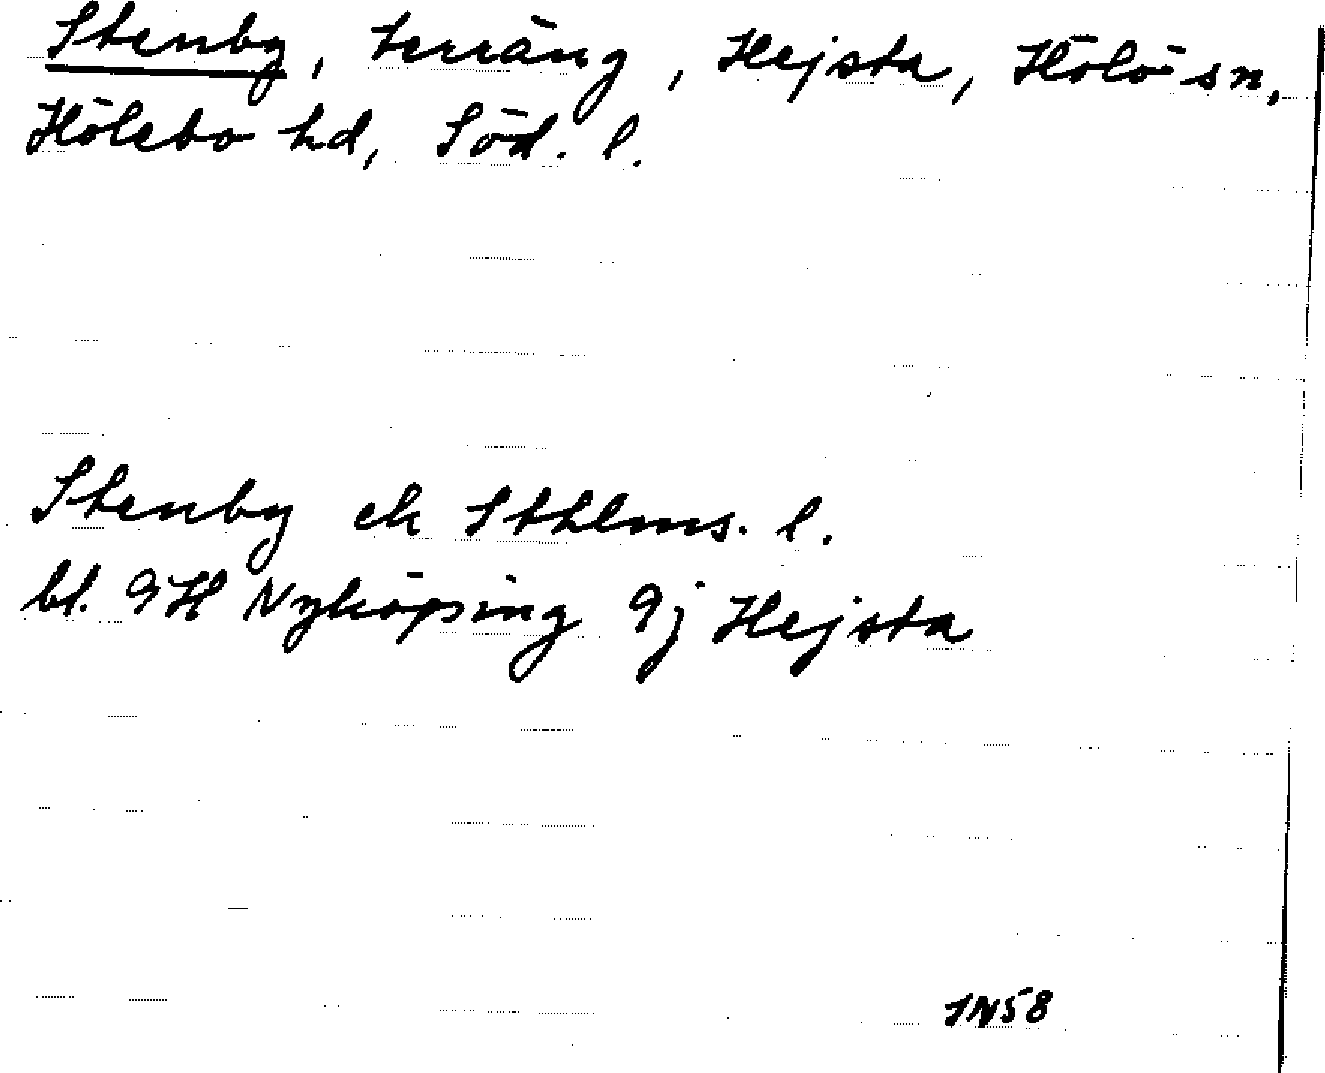 Stenby, terräng, Hejsta, Hölö sn,
Hölebo hd, Söd. l.
Stenby ek Sthlms. l.
bl. 9H Nyköping 9j Hejsta
JN58